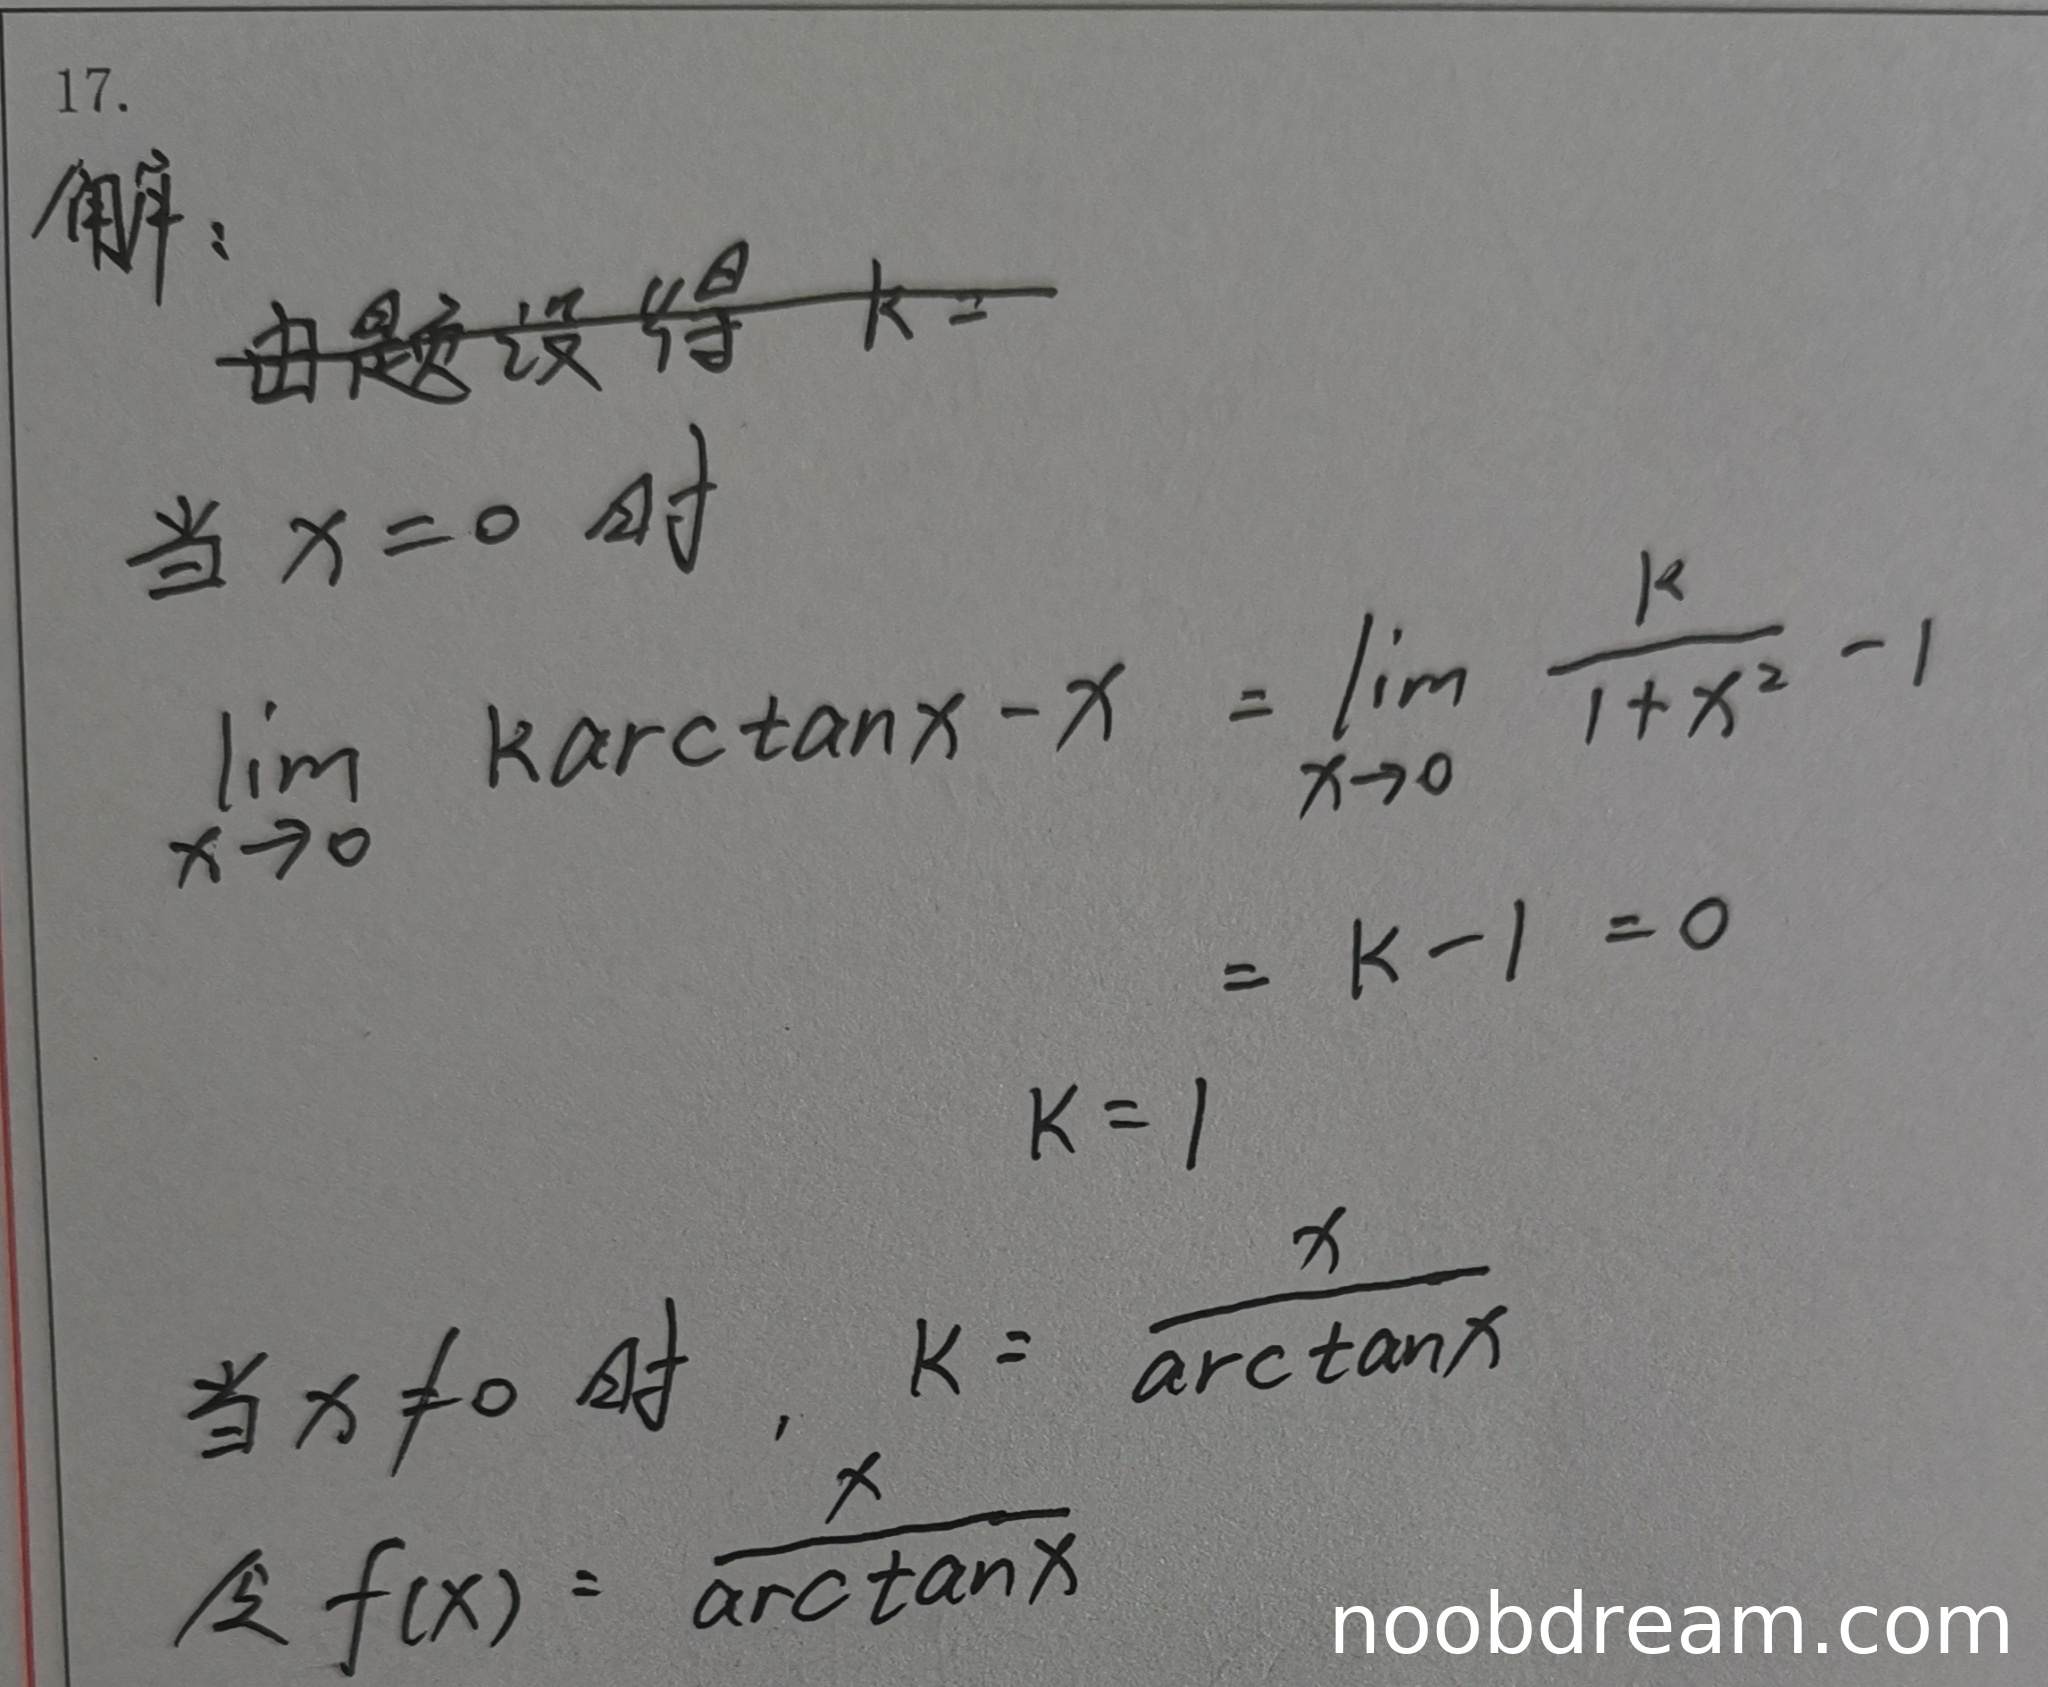 17.
解:
由题设得 k=
当 x=0 时
lim x→0 karctanx-x = lim x→0 k/(1+x²) -1
= k-1 =0
k=1
当 x≠0 时, k= x/arctanx
令 f(x) = x/arctanx
noobdream.com